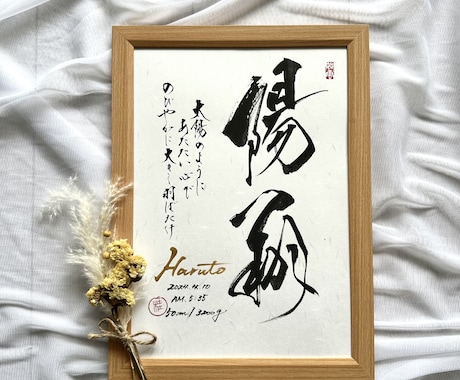 陽翔
太陽のように
あたたかい心で
のびやかに大きく羽ばたけ
Haruto
AM. 5:35
50cm / 3200g